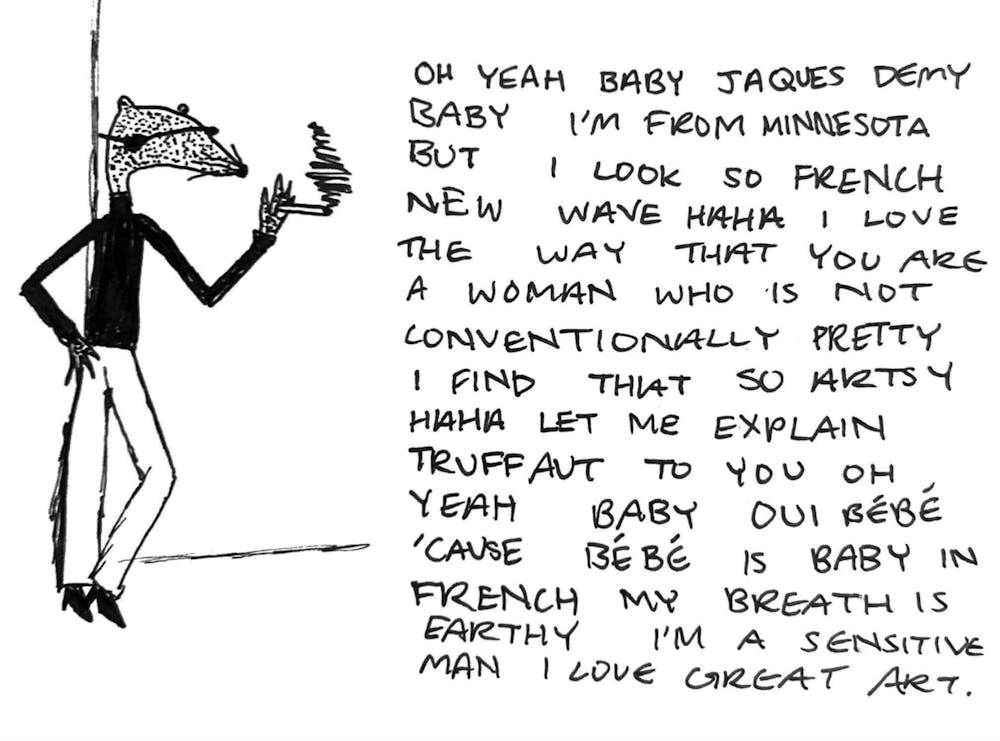 OH YEAH BABY JAQUES DEMY
BABY I'M FROM MINNESOTA
BUT I LOOK SO FRENCH
NEW WAVE HAHA I LOVE
THE WAY THAT YOU ARE
A WOMAN WHO IS NOT
CONVENTIONALLY PRETTY
I FIND THAT SO ARTSY
HAHA LET ME EXPLAIN
TRUFFAUT TO YOU OH
YEAH BABY OUI BÉBÉ
'CAUSE BÉBÉ IS BABY IN
FRENCH MY BREATH IS
EARTHY I'M A SENSITIVE
MAN I LOVE GREAT ART.